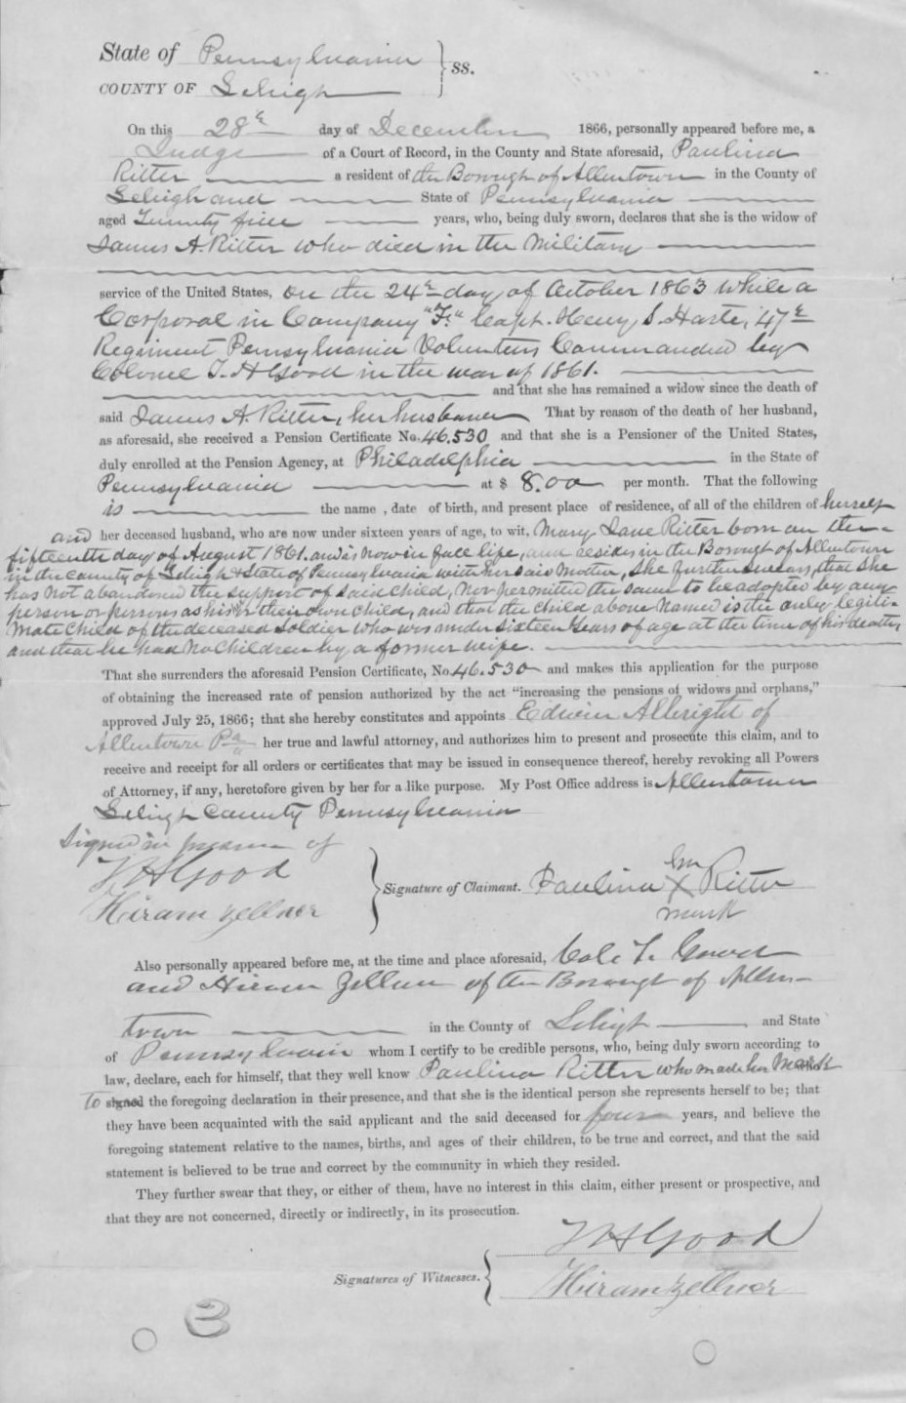 State of Pennsylvania
COUNTY OF Lehigh } ss.
On this 28th day of December 1866, personally appeared before me, a
Judge of a Court of Record, in the County and State aforesaid, Paulina
Ritter a resident of the Borough of Allentown in the County of
Lehigh and State of Pennsylvania
aged Twenty five years, who, being duly sworn, declares that she is the widow of
James A. Ritter who died in the Military
service of the United States, on the 24th day of October 1863 while a
Corporal in Company "F" Capt. Henry S. Harte, 47th
Regiment Pennsylvania Volunteers Commanded by
Colonel T. H Good in the war of 1861.
and that she has remained a widow since the death of
said James A. Ritter, her husband That by reason of the death of her husband,
as aforesaid, she received a Pension Certificate No. 46.530 and that she is a Pensioner of the United States,
duly enrolled at the Pension Agency, at Philadelphia in the State of
Pennsylvania at $ 8.00 per month. That the following
is the name , date of birth, and present place of residence, of all of the children of herself
and her deceased husband, who are now under sixteen years of age, to wit, Mary Jane Ritter born on the
fifteenth day of August 1861. and is now in full life, and resides in the Borough of Allentown
in the County of Lehigh & State of Pennsylvania with her said Mother, She further swears, that she
has not abandoned the support of said child, nor permitted the same to be adopted by any
person or persons as his or their own child, and that the child above named is the only legiti-
mate child of the deceased soldier who was under sixteen years of age at the time of his death,
and that he had no children by a former wife.
That she surrenders the aforesaid Pension Certificate, No. 46.530 and makes this application for the purpose
of obtaining the increased rate of pension authorized by the act "increasing the pensions of widows and orphans,"
approved July 25, 1866; that she hereby constitutes and appoints Edwin Albright of
Allentown Pa her true and lawful attorney, and authorizes him to present and prosecute this claim, and to
receive and receipt for all orders or certificates that may be issued in consequence thereof, hereby revoking all Powers
of Attorney, if any, heretofore given by her for a like purpose. My Post Office address is Allentown
Lehigh County Pennsylvania
Signed in presence of
T H Good
Hiram Zellner
Signature of Claimant. Paulina her X mark Ritter
Also personally appeared before me, at the time and place aforesaid, Col. T. Good
and Hiram Zellner of the Borough of Allen-
town in the County of Lehigh and State
of Pennsylvania whom I certify to be credible persons, who, being duly sworn according to
law, declare, each for himself, that they well know Paulina Ritter who made her Mark
To signed the foregoing declaration in their presence, and that she is the identical person she represents herself to be; that
they have been acquainted with the said applicant and the said deceased for four years, and believe the
foregoing statement relative to the names, births, and ages of their children, to be true and correct, and that the said
statement is believed to be true and correct by the community in which they resided.
They further swear that they, or either of them, have no interest in this claim, either present or prospective, and
that they are not concerned, directly or indirectly, in its prosecution.
T H Good
Signatures of Witnesses.
Hiram Zellner
3